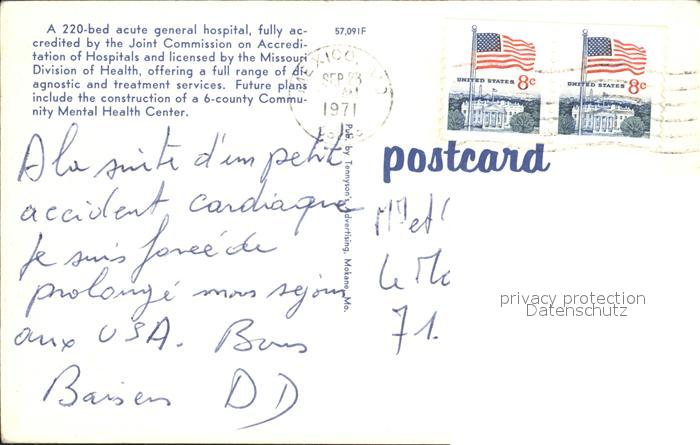 A 220-bed acute general hospital, fully ac-
credited by the Joint Commission on Accredi-
tation of Hospitals and licensed by the Missouri
Division of Health, offering a full range of di-
agnostic and treatment services. Future plans
include the construction of a 6-county Commu-
nity Mental Health Center.
57,091F
MEXICO, MO
SEP 23
AM
1971
UNITED STATES 8c
UNITED STATES 8c
postcard
Pub. by Tennyson's Advertising, Mokane, Mo.
A la suite d'un petit
accident cardiaque
je suis forcée de
prolongé mon séjour
aux USA. Bons
Baisers DD
Mr et
Le
71.
privacy protection
Datenschutz